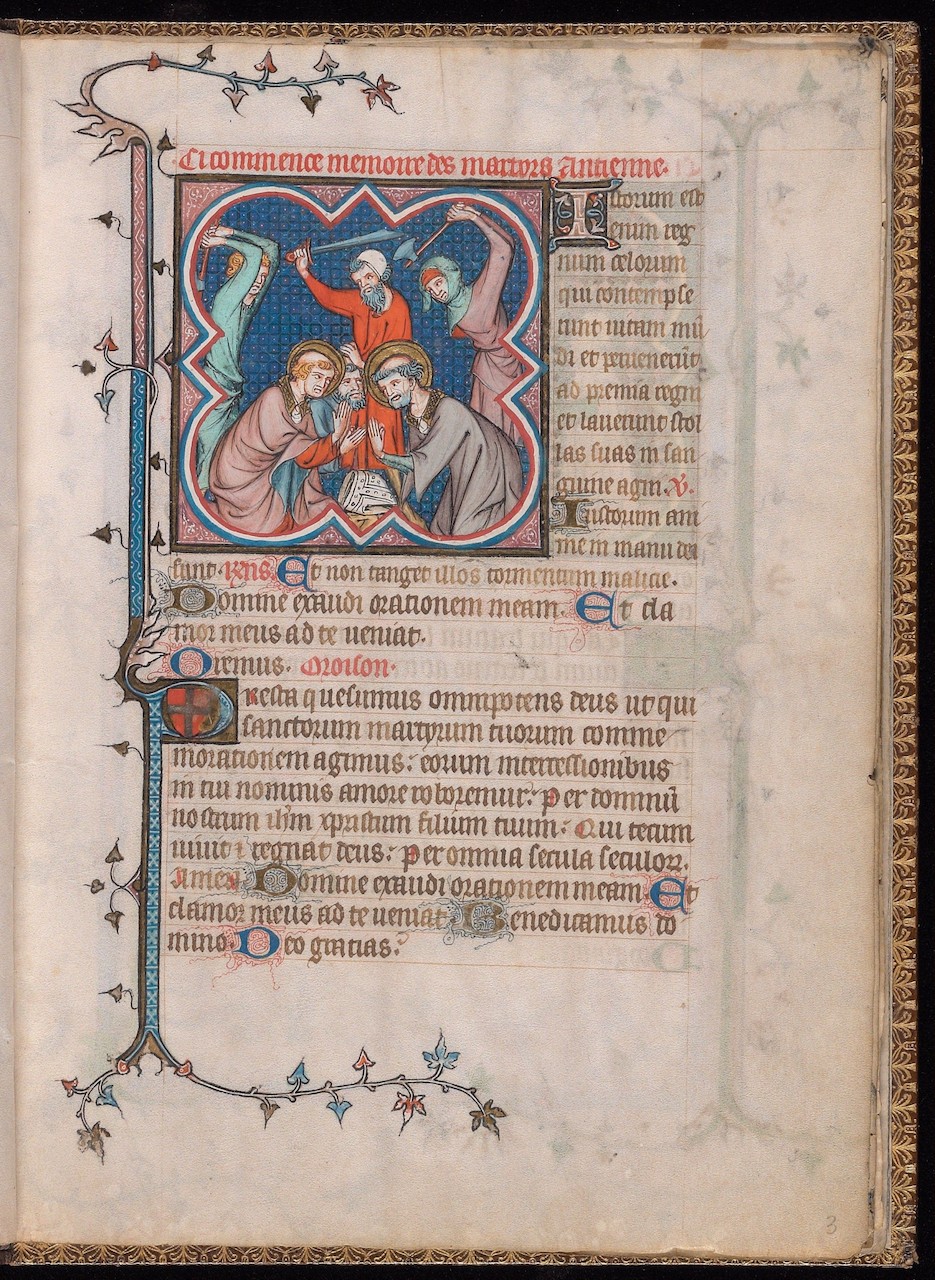 Ci commence memoire des martyrs Antienne.
Istorum est
enim reg
num celorum
qui contempse
runt uitam mū
di et peruenerūt
ad premia regni
et lauerunt stol
las suas in san
guine agni. V.
Iustorum ani
me in manu dei
sunt. Rns. Et non tanget illos tormentum malicie.
Domine exaudi orationem meam. Et cla
mor meus ad te ueniat.
Oremus. Oroison.
Presta quesumus omnipotens deus ut qui
sanctorum martyrum tuorum comme
morationem agimus: eorum intercessionibus
in tui nominis amore roboremur: Per dominū
nostrum ihm xpistum filium tuum: Qui tecum
uiuit ⁊ regnat deus: Per omnia secula seculorꝝ.
Amen. Domine exaudi orationem meam. Et
clamor meus ad te ueniat. Benedicamus do
mino. Deo gracias.
3